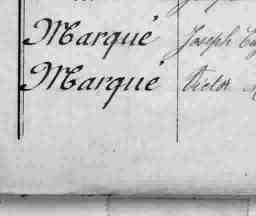 Marqué Joseph
Marqué Victor